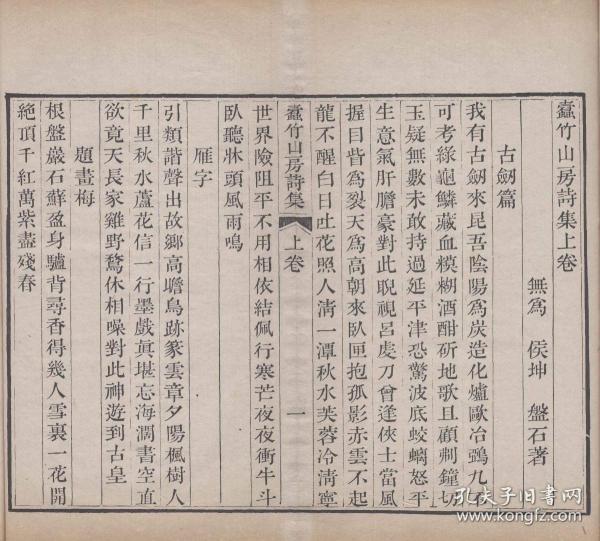 蠹竹山房詩集上卷
無爲 侯坤 盤石著
古劒篇
我有古劒來昆吾陰陽爲炭造化爐歐冶鴉九不
可考綠龜鱗蔵血糢糊酒酣斫地歌且顧剸鐘切
玉疑無數未敢持過延平津恐驚波底蛟螭怒平
生意氣肝膽豪對此睨視呂虔刀曾逢俠士當風
握目皆爲裂天爲高朝來臥匣抱孤影赤雲不起
龍不醒白日吐花照人淸一潭秋水芙蓉冷淸寧
蠹竹山房詩集 上卷 一
世界險阻平不用相依結佩行寒芒夜夜衝牛斗
臥聽牀頭風雨鳴
雁字
引類諧聲出故鄉高瞻鳥跡篆雲章夕陽楓樹人
千里秋水蘆花信一行墨戲眞堪忘海濶書空直
欲竟天長家雞野鶩休相噪對此神遊到古皇
題畫梅
根盤巖石蘚盈身驢背尋香得幾人雪裏一花開
絶頂千紅萬紫盡殘春
孔夫子旧书网
www.kongfz.com